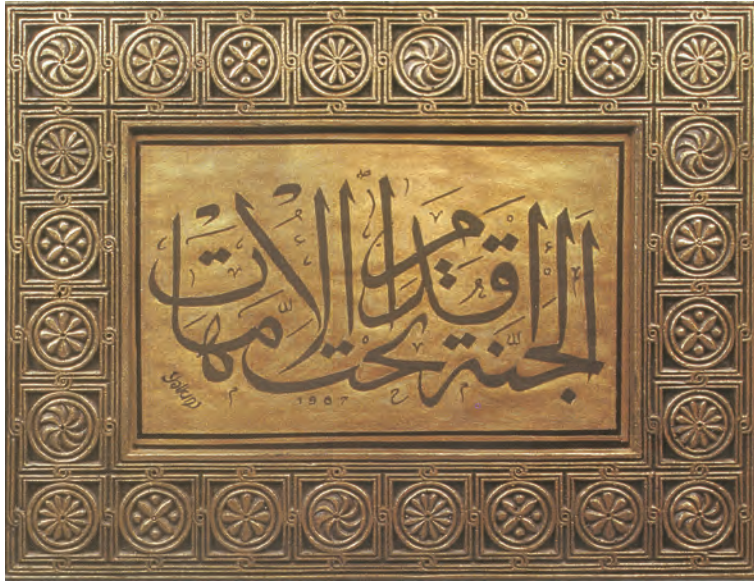 الجنة تحت اقدام الامهات
Yakup
1967